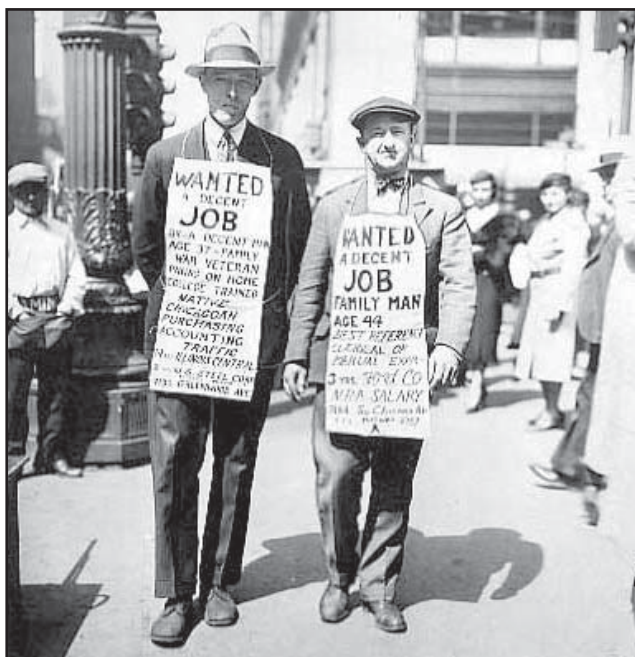 WANTED
A DECENT
JOB
BY A DECENT MAN
AGE 37 - FAMILY
WAR VETERAN
PAYING ON HOME
COLLEGE TRAINED
NATIVE
CHICAGOAN
PURCHASING
ACCOUNTING
TRAFFIC
ILLINOIS CENTRAL
STEEL CORP
WANTED
A DECENT
JOB
FAMILY MAN
AGE 44
BEST REFERENCE
CLERICAL OR
MANUAL EXP.
CO
N.R.A. SALARY